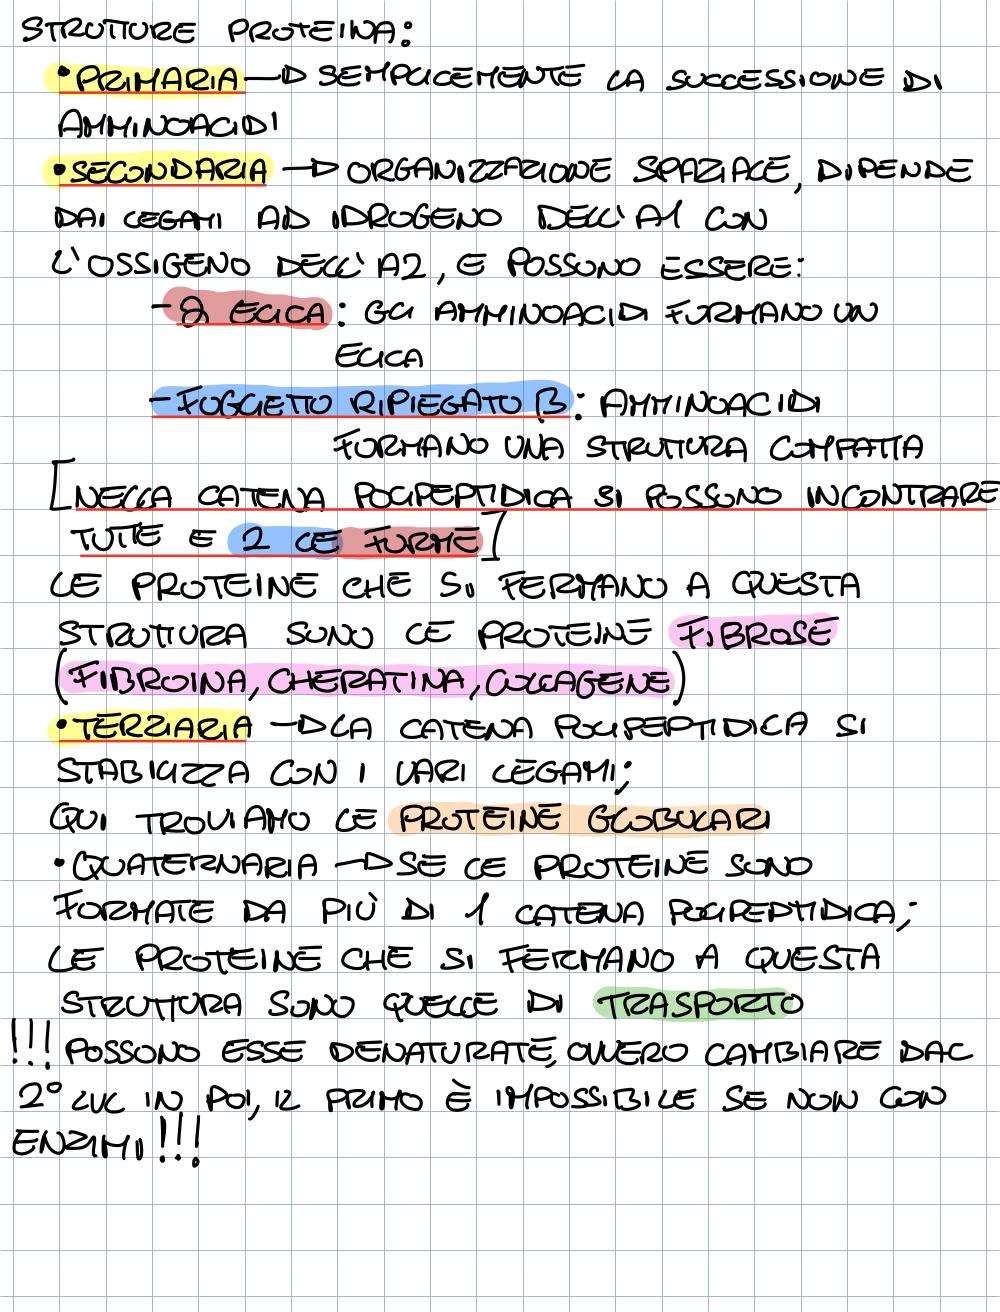 STRUTTURE PROTEINA:
• PRIMARIA → SEMPLICEMENTE LA SUCCESSIONE DI
AMMINOACIDI
• SECONDARIA → ORGANIZZAZIONE SPAZIALE, DIPENDE
DAI LEGAMI AD IDROGENO DELL'A1 CON
L'OSSIGENO DELL'A2, E POSSONO ESSERE:
- α ELICA: GLI AMMINOACIDI FORMANO UN
ELICA
- FOGLIETTO RIPIEGATO β: AMMINOACIDI
FORMANO UNA STRUTTURA COMPATTA
[NELLA CATENA POLIPEPTIDICA SI POSSONO INCONTRARE
TUTTE E 2 LE FORME]
LE PROTEINE CHE SI FERMANO A QUESTA
STRUTTURA SONO LE PROTEINE FIBROSE
(FIBROINA, CHERATINA, COLLAGENE)
• TERZIARIA → LA CATENA POLIPEPTIDICA SI
STABILIZZA CON I VARI LEGAMI;
QUI TROVIAMO LE PROTEINE GLOBULARI
• QUATERNARIA → SE LE PROTEINE SONO
FORMATE DA PIÙ DI 1 CATENA POLIPEPTIDICA;
LE PROTEINE CHE SI FERMANO A QUESTA
STRUTTURA SONO QUELLE DI TRASPORTO
!!! POSSONO ESSE DENATURATE, OVVERO CAMBIARE DAL
2° LVL IN POI, IL PRIMO È IMPOSSIBILE SE NON CON
ENZIMI!!!